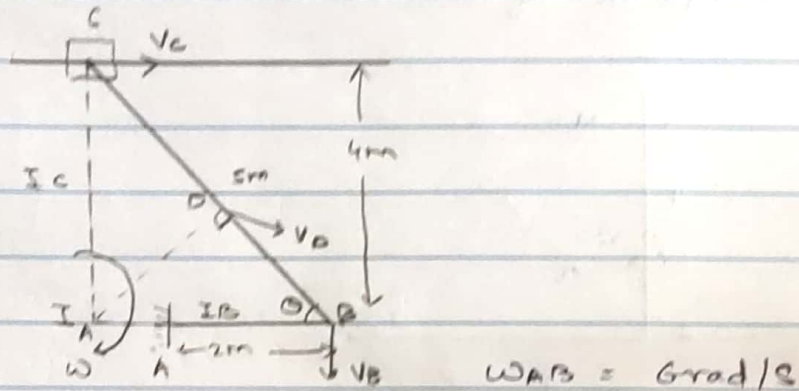 C
Vc
4m
Ic
5m
D
VD
I
IB
θ
B
A
ω
A
2m
VB
WAB = 6rad/s